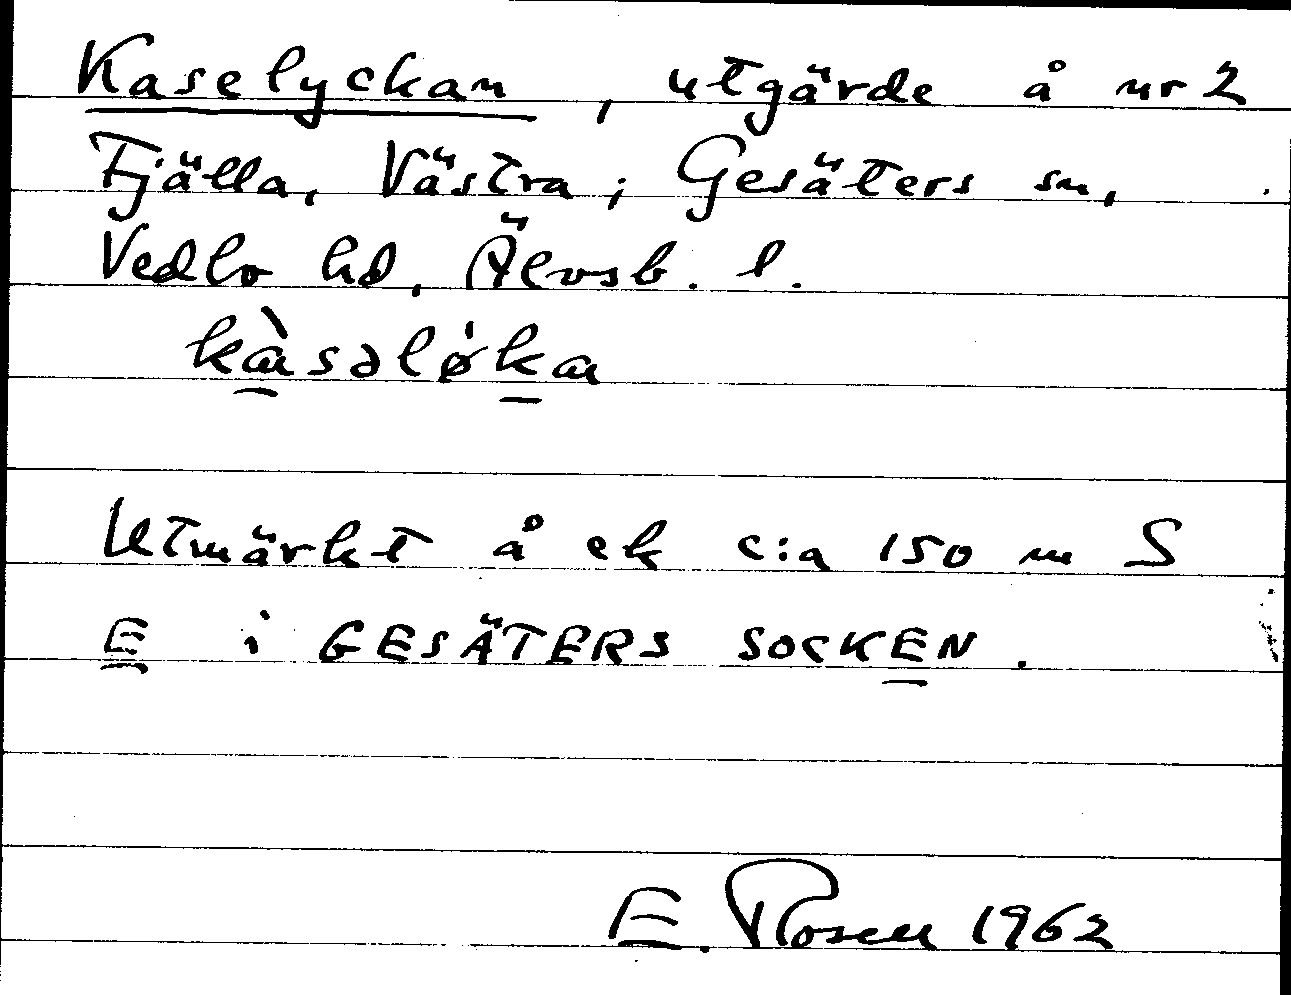 Kaselyckan, utgärde å nr 2
Fjälla, Västra; Gesäters sn,
Vedbo hd, Älvsb. l.
kàsəlø̍ka
Utmärkt å ek c:a 150 m S
E i GESÄTERS SOCKEN.
E. Rosell 1962